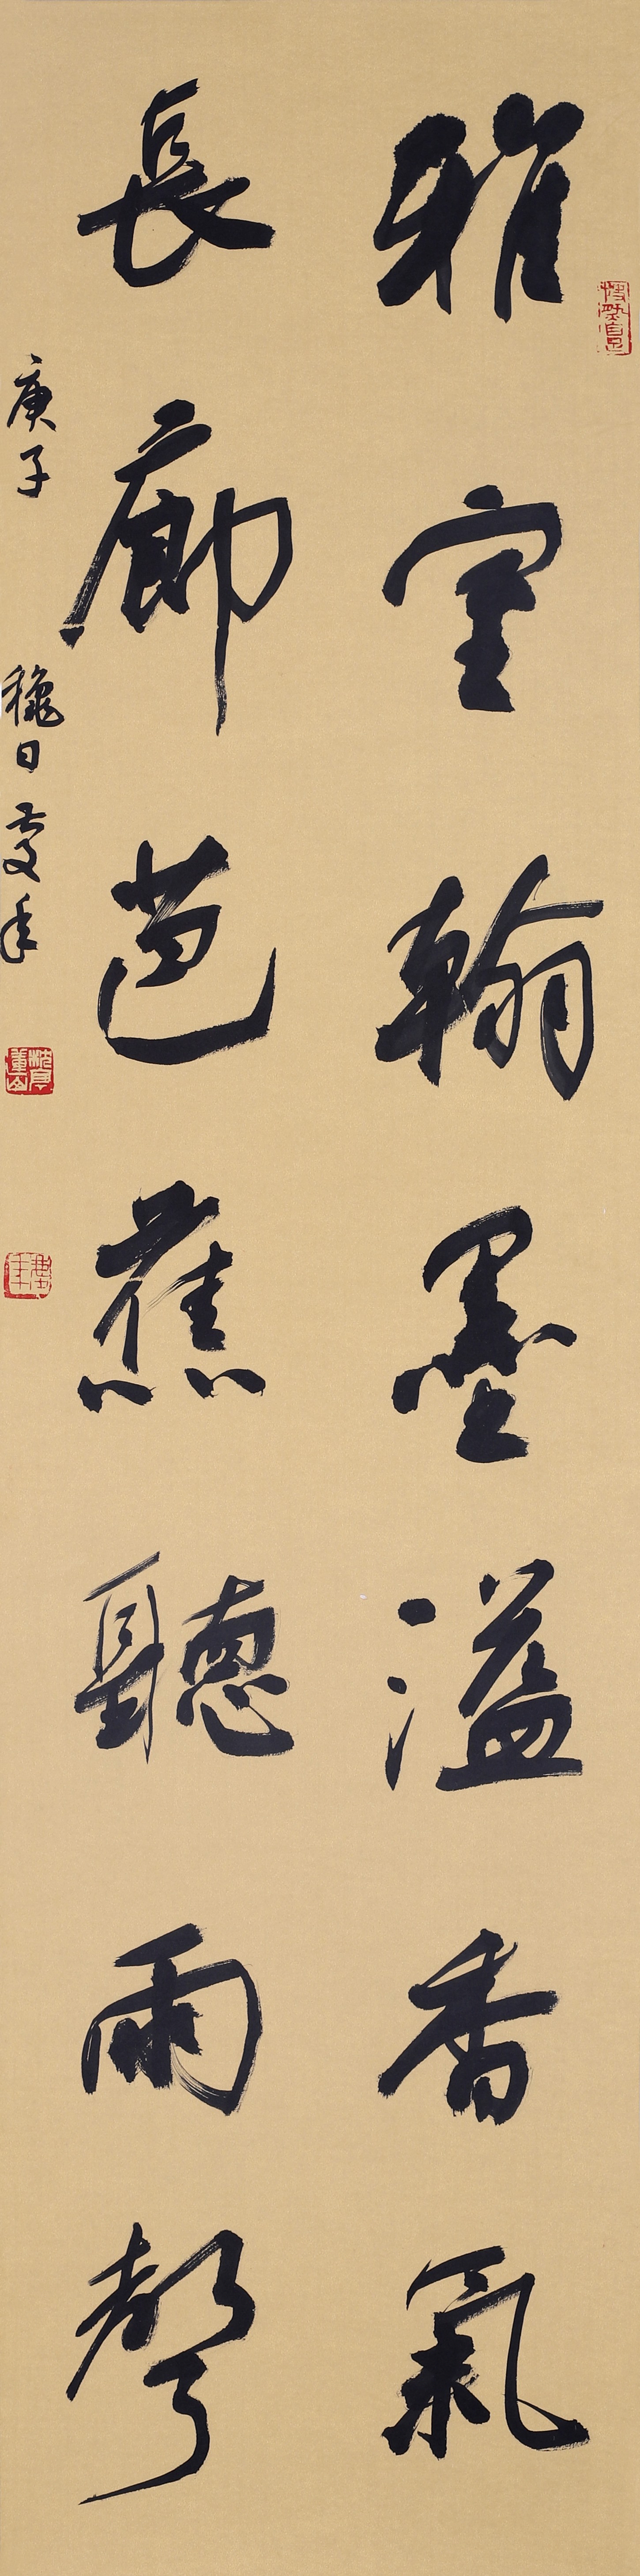 雅室翰墨溢香氣
長廊芭蕉聽雨聲
庚子 龝日 慶年